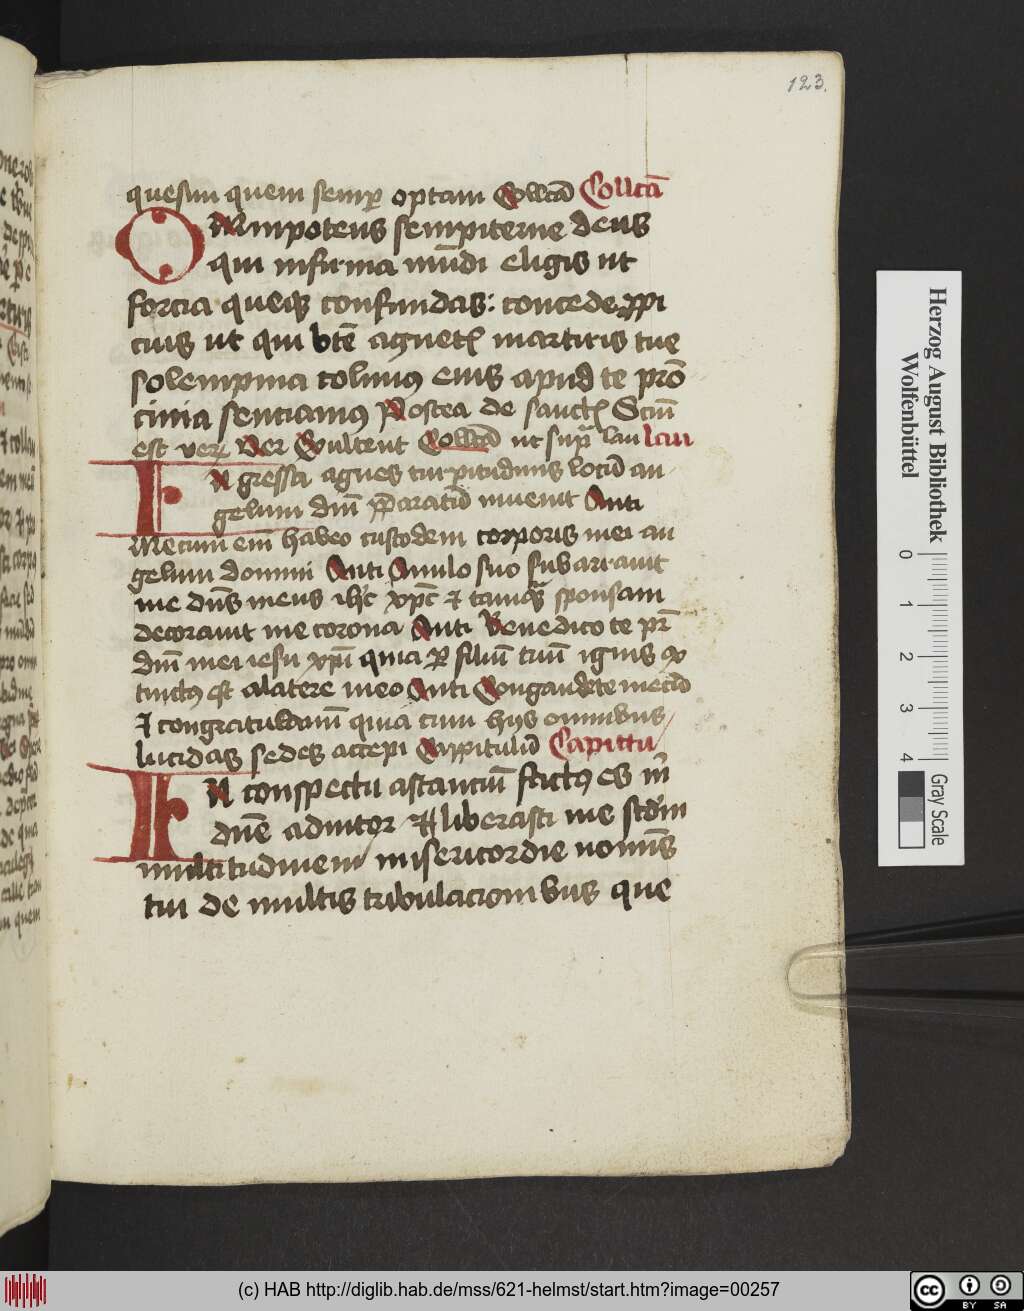 123.
quesiui quem semꝑ optaui Collcā Collcā
Omnipotens sempiterne deus
qui infirma mūdi eligis ut
forcia queqꝫ confundas: concede ꝓpi
cius ut qui btē agnetꝭ martiris tue
solempnia colimꝰ eius apud te prō
cinia senciamꝰ Postea de sanctꝭ
est Collcā ut supͣ
In gressa agnes turpitudinis locū an
gelum dn̄i p̄paratū inuenit Anti
Mecum em̄ habeo custodem corporis mei an
gelum domini Anti Anulo suo subarrauit
me dn̄s meus ih̄c xp̄c ⁊ tamqͣ sponsam
decorauit me corona Anti Benedico te pr̄
dn̄i mei iesu xp̄i quia ꝑ filiū tuū ignis ex
tinctꝰ est alatere meo Anti Congaudete mecū
⁊ congratulamī quia cum hijs omnibus
lucidas sedes accepi Cappitulū Capittu
In conspectu astanciū factꝰ es m̄
dn̄e adiutor ⁊ liberasti me scd̄m
multitudinem misericordie nominis
tui de multis tribulacionibus que
Herzog August Bibliothek
Wolfenbüttel
0 1 2 3 4
Gray Scale
(c) HAB http://diglib.hab.de/mss/621-helmst/start.htm?image=00257
cc BY SA